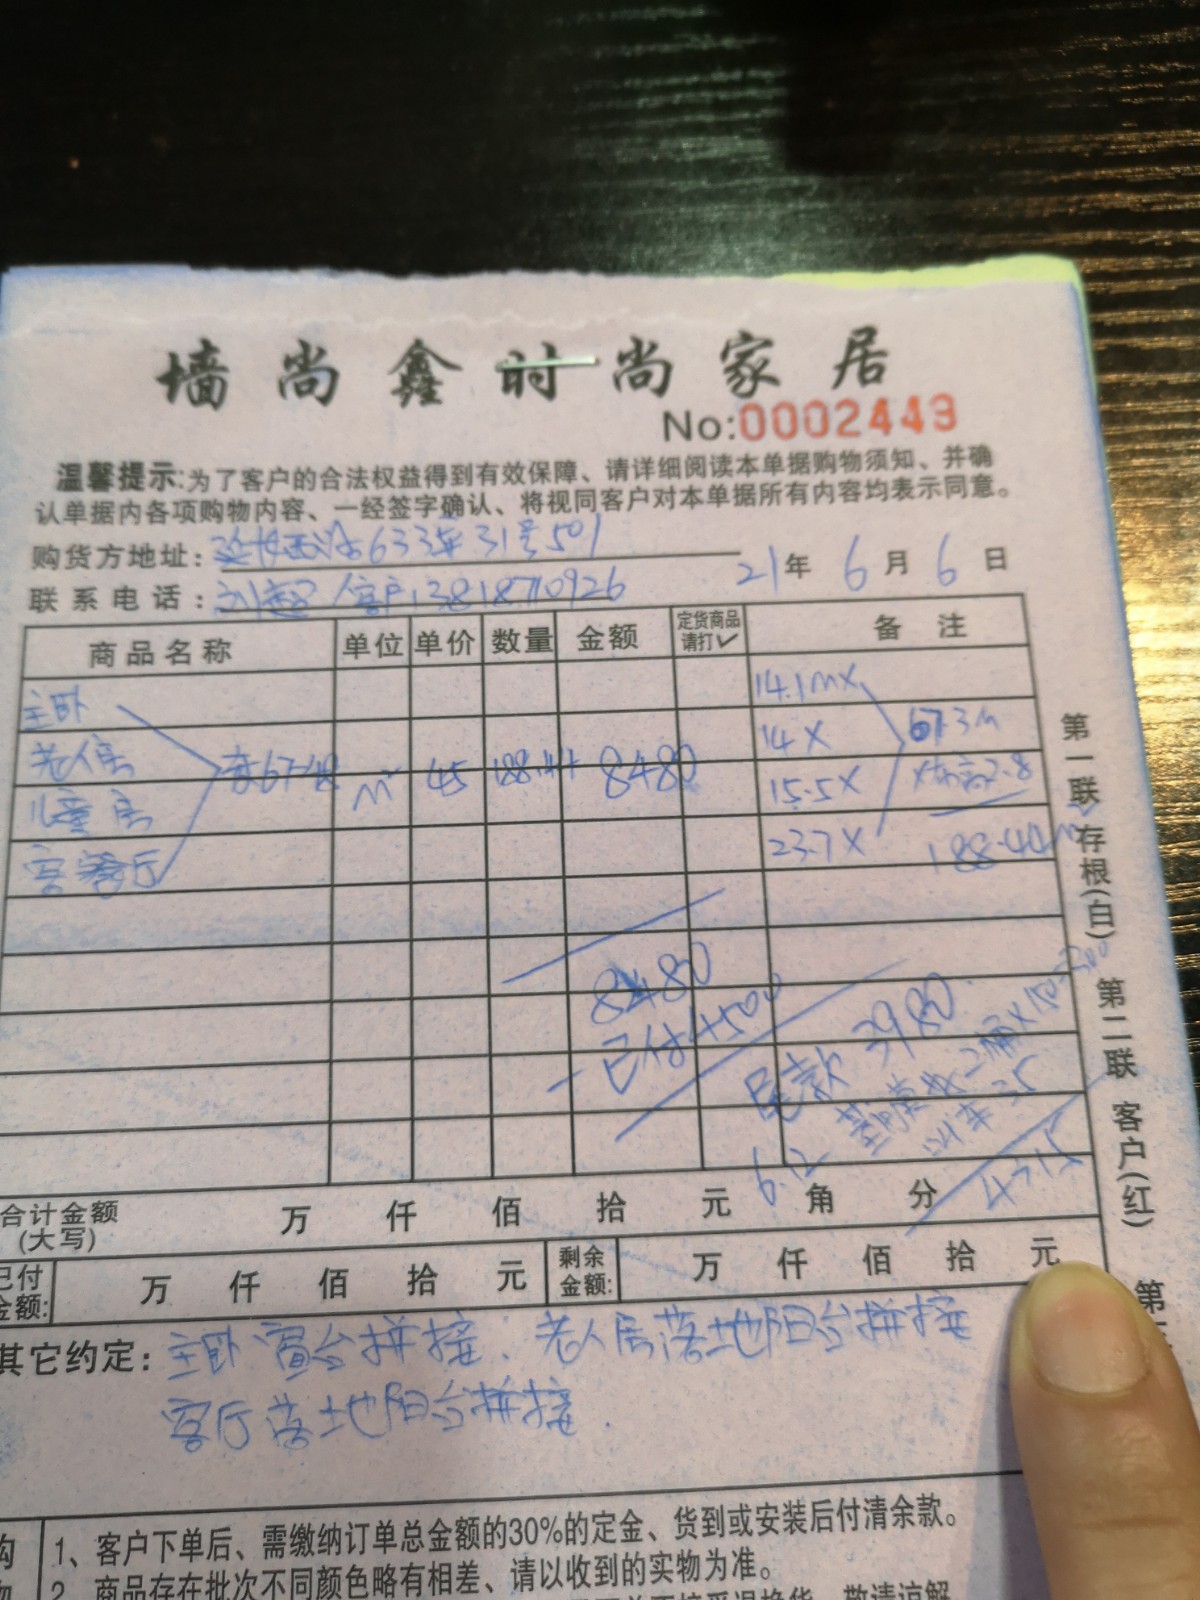 墙尚鑫时尚家居
No:0002449
温馨提示:为了客户的合法权益得到有效保障、请详细阅读本单据购物须知、并确
认单据内各项购物内容、一经签字确认、将视同客户对本单据所有内容均表示同意。
购货方地址: 延长西路633弄31号501
联系电话: 客户13818710926
21年 6月 6日
商品名称 单位 单价 数量 金额 定货商品请打✓ 备注
主卧 14.1m×
老人房 14× 67.3m
67-48 m² 45 188.44 8480
儿童房 15.5× ×布高2.8
客餐厅 23.7× 188.44m²
8480
-已付4500
尾款 3980
6.12
4715
合计金额(大写) 万 仟 佰 拾 元 角 分
已付金额: 万 仟 佰 拾 元 剩余金额: 万 仟 佰 拾 元
其它约定: 主卧窗台拼接、老人房落地阳台拼接
客厅落地阳台拼接.
1、客户下单后、需缴纳订单总金额的30%的定金、货到或安装后付清余款。
2、商品存在批次不同颜色略有相差、请以收到的实物为准。
第一联 存根(白) 第二联 客户(红) 第